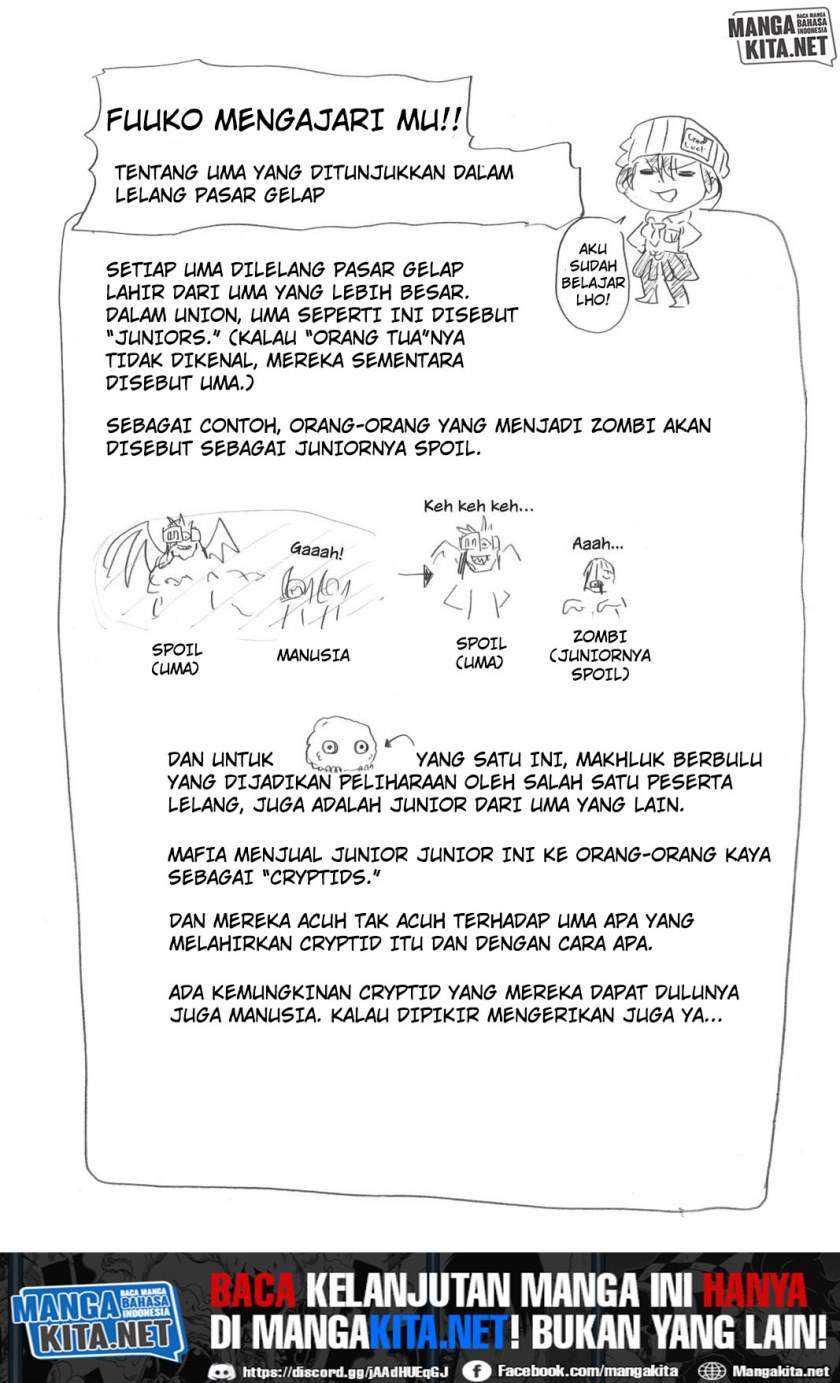 MANGA BACA MANGA BAHASA INDONESIA
KITA.NET
FUUKO MENGAJARI MU!!
TENTANG UMA YANG DITUNJUKKAN DALAM
LELANG PASAR GELAP
Good
Luck
AKU
SUDAH
BELAJAR
LHO!
SETIAP UMA DILELANG PASAR GELAP
LAHIR DARI UMA YANG LEBIH BESAR.
DALAM UNION, UMA SEPERTI INI DISEBUT
"JUNIORS." (KALAU "ORANG TUA"NYA
TIDAK DIKENAL, MEREKA SEMENTARA
DISEBUT UMA.)
SEBAGAI CONTOH, ORANG-ORANG YANG MENJADI ZOMBI AKAN
DISEBUT SEBAGAI JUNIORNYA SPOIL.
Gaaah!
SPOIL
(UMA)
MANUSIA
Keh keh keh...
Aaah...
SPOIL
(UMA)
ZOMBI
(JUNIORNYA
SPOIL)
DAN UNTUK YANG SATU INI, MAKHLUK BERBULU
YANG DIJADIKAN PELIHARAAN OLEH SALAH SATU PESERTA
LELANG, JUGA ADALAH JUNIOR DARI UMA YANG LAIN.
MAFIA MENJUAL JUNIOR JUNIOR INI KE ORANG-ORANG KAYA
SEBAGAI "CRYPTIDS."
DAN MEREKA ACUH TAK ACUH TERHADAP UMA APA YANG
MELAHIRKAN CRYPTID ITU DAN DENGAN CARA APA.
ADA KEMUNGKINAN CRYPTID YANG MEREKA DAPAT DULUNYA
JUGA MANUSIA. KALAU DIPIKIR MENGERIKAN JUGA YA...
MANGA BACA MANGA BAHASA INDONESIA
KITA.NET
BACA KELANJUTAN MANGA INI HANYA
DI MANGAKITA.NET! BUKAN YANG LAIN!
https://discord.gg/jAAdHUEqGJ Facebook.com/mangakita Mangakita.net